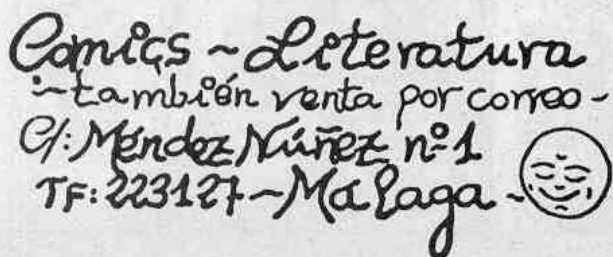 Comics ~ Literatura
~ también venta por correo -
C/: Méndez Núñez nº 1
TF: 223127 ~ Málaga -